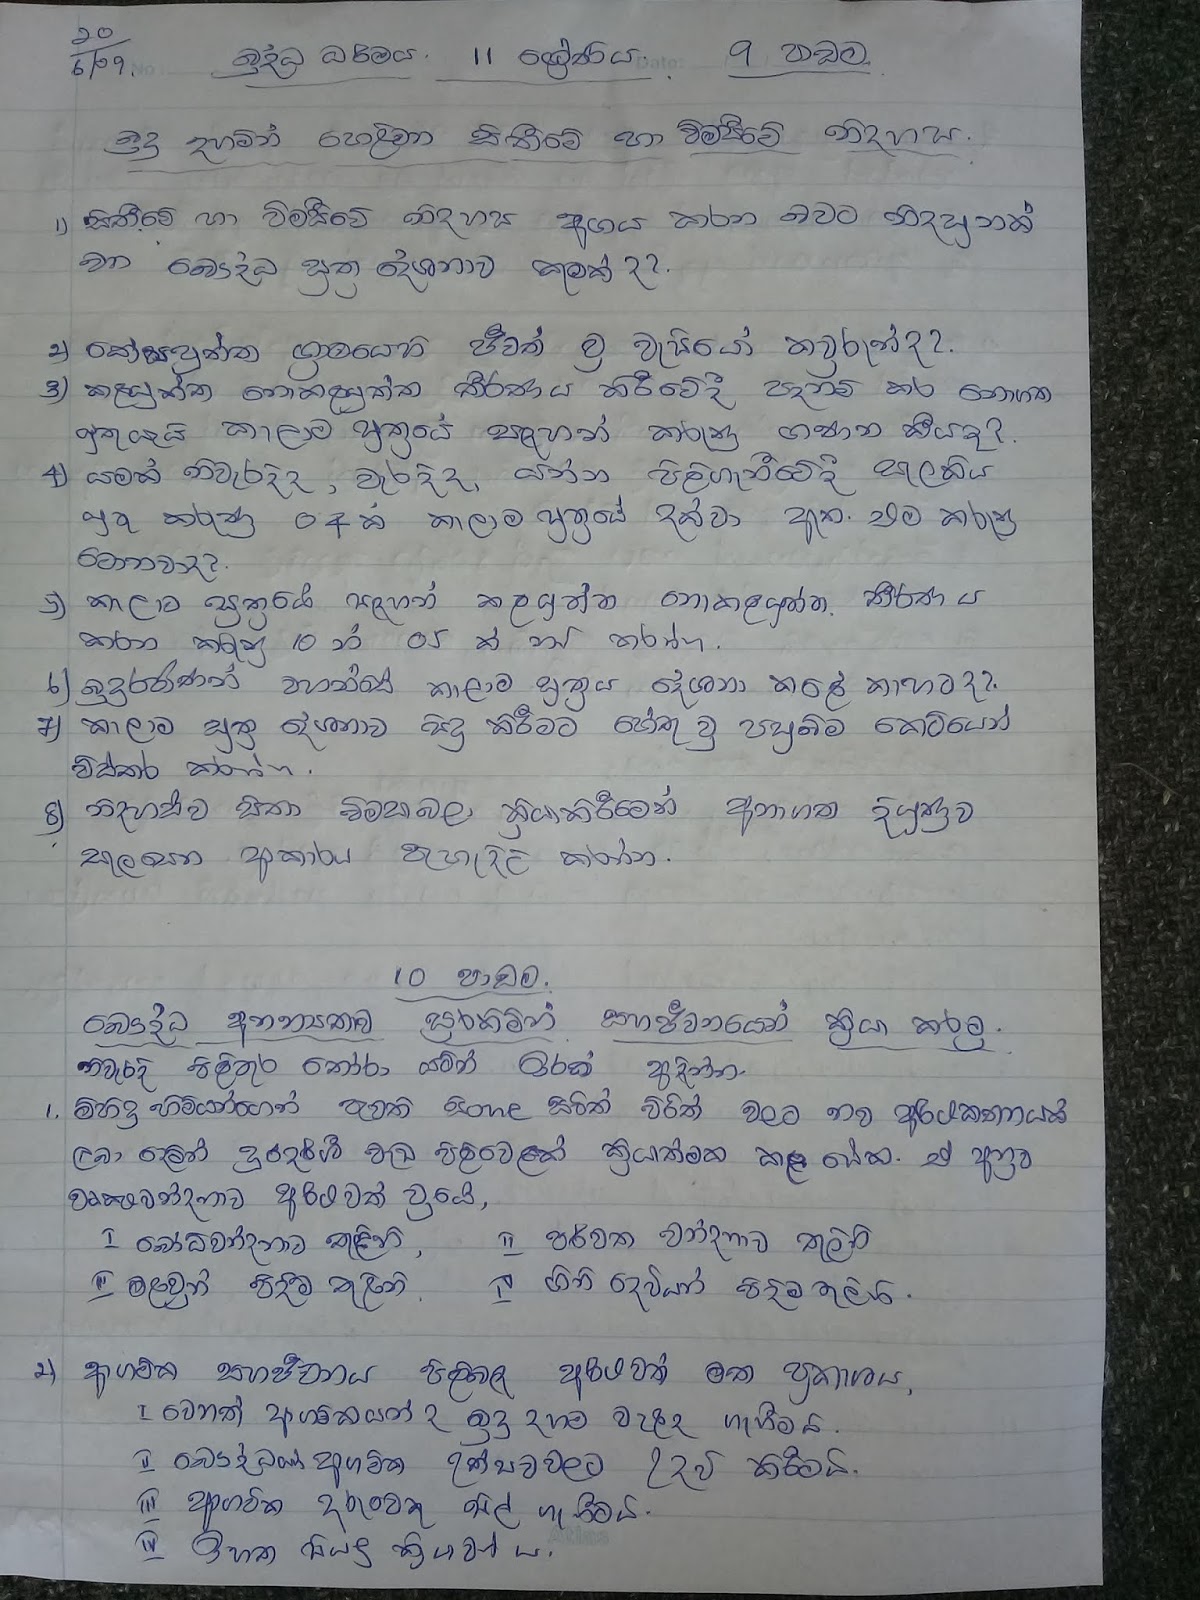 20
6/09
බුද්ධ ධර්මය. 11 ශ්‍රේණිය. 9 පාඩම.
බුදු දහමින් හෙළිවන සිතීමේ හා විමසීමේ නිදහස.
1) සිතීමේ හා විමසීමේ නිදහස අගය කරන බවට නිදසුනක්
වන බෞද්ධ සූත්‍ර දේශනාව කුමක් ද?.
2) කේසපුත්ත ග්‍රාමයෙහි ජීවත් වූ වැසියෝ කවුරුන්ද?.
3) කළයුත්ත නොකළයුත්ත තීරණය කිරීමේදී පදනම් කර නොගත
යුතුයැයි කාලාම සූත්‍රයේ සඳහන් කරුණු ගණන කීයද?.
4) යමක් නිවැරදිද, වැරදිද, යන්න පිළිගැනීමේදී සැලකිය
යුතු කරුණු 04ක් කාලාම සූත්‍රයේ දක්වා ඇත. එම කරුණු
මොනවාද?.
5) කාලාම සූත්‍රයේ සඳහන් කළයුත්ත නොකළයුත්ත තීරණය
කරන කරුණු 10 න් 05 ක් නම් කරන්න.
6) බුදුරජාණන් වහන්සේ කාලාම සූත්‍රය දේශනා කළේ කාහටද?.
7) කාලාම සූත්‍ර දේශනාව සිදු කිරීමට හේතු වූ පසුබිම කෙටියෙන්
විස්තර කරන්න.
8) නිදහස්ව සිතා විමසා බලා ක්‍රියාකිරීමෙන් අනාගත දියුණුව
සැලසෙන ආකාරය පැහැදිලි කරන්න.
10 පාඩම.
බෞද්ධ අනන්‍යතාව සුරකිමින් සහජීවනයෙන් ක්‍රියා කරමු.
නිවැරදි පිළිතුර තෝරා යටින් ඉරක් අඳින්න.
1. මිහිඳු හිමියන්ගෙන් පැවති සිරිත් විරිත් වලට නව අර්ථකතනයක්
ලබා දෙමින් දූරදර්ශී වැඩ පිළිවෙළක් ක්‍රියාත්මක කළ සේක. ඒ අනුව
වෘක්ෂවන්දනාව අර්ථවත් වූයේ,
I බෝධිවන්දනාව තුළිනි, II පර්වත වන්දනාව තුලිනි
III මළවුන් පිදීම තුළිනි. IV ගිනි දෙවියන් පිදීම තුලිනි.
2) ආගමික සහජීවනය පිළිබඳ අර්ථවත් මත ප්‍රකාශය,
I වෙනත් ආගමිකයන් ද බුදු දහම වැළඳ ගැනීමයි.
II බෞද්ධයන් ආගමික උත්සවවලට උදව් කිරීමයි.
III ආගමික දරුවෙකු සිල් ගැනීමයි.
IV ඉහත සියල්ල